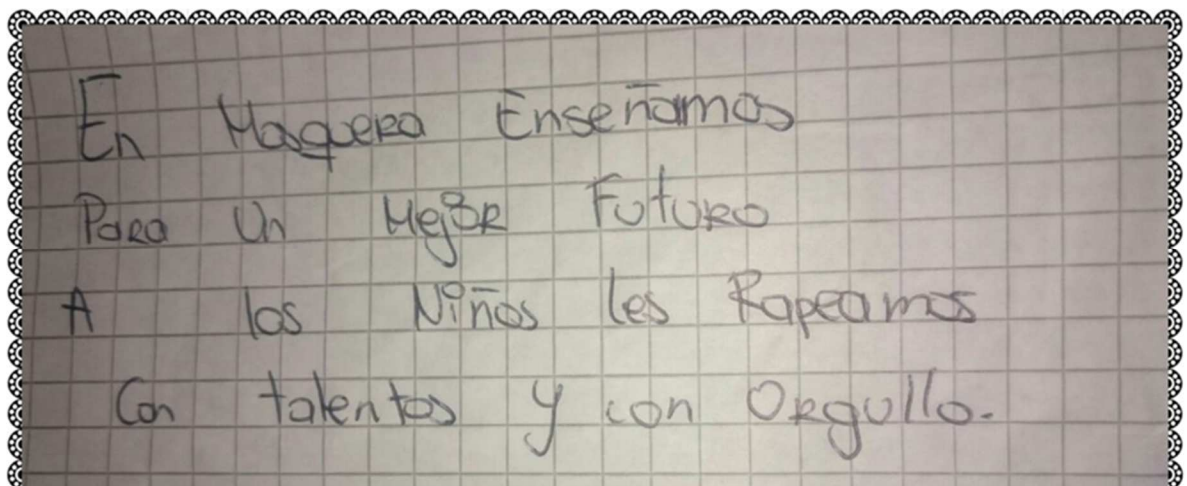 En Mosquera Enseñamos
Para Un Mejor Futuro
A los Niños les Rapeamos
Con talentos y con Orgullo.